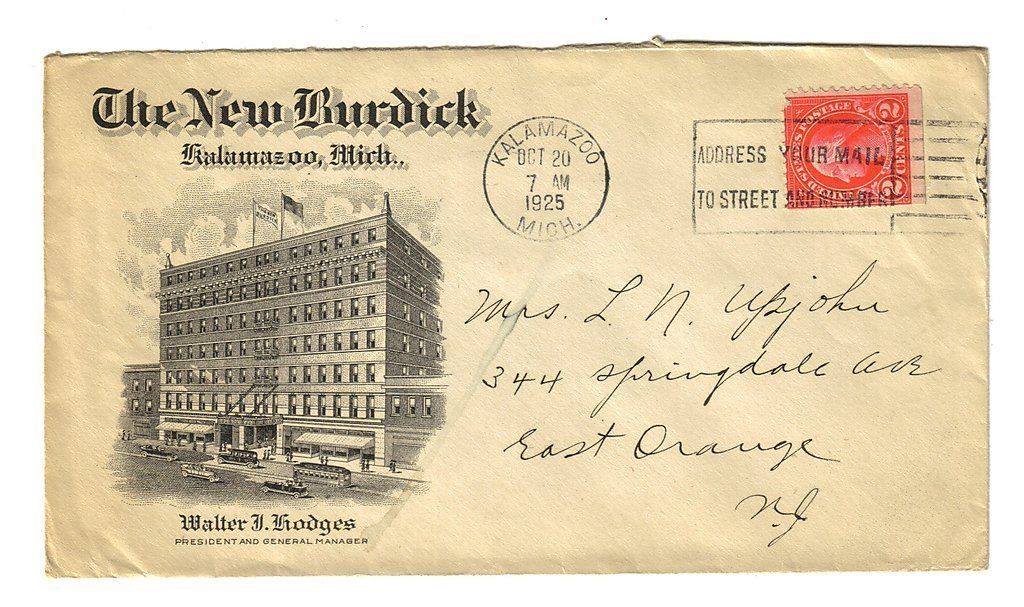 The New Burdick
Kalamazoo, Mich.
KALAMAZOO
OCT 20
7 AM
1925
MICH.
ADDRESS YOUR MAIL
TO STREET AND NUMBER
UNITED STATES POSTAGE
2 CENTS 2
Mrs. L. N. Upjohn
344 Springdale Ave
East Orange
N.J
Walter J. Hodges
PRESIDENT AND GENERAL MANAGER